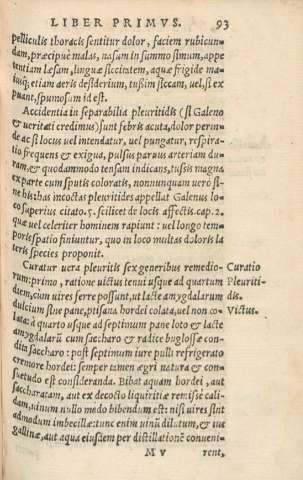 LIBER PRIMVS. 93
pelliculis thoracis sentitur dolor, faciem rubicun-
dam, præcipuè malas, nasum in summo simum, appe
tentiam læsam, linguæ siccitatem, aquæ frigidæ ma-
etiam aëris desiderium, tußim siccam, uel, si ex
puant, spumosum id est.
Accidentia inseparabilia pleuritidis (si Galeno
& ueritati credimus) sunt febris acuta, dolor perin-
de ac si locus uel intendatur, uel pungatur, respira-
tio frequens & exigua, pulsus paruus arteriam du-
ram, & quodammodo tensam indicans, tußis magna
ex parte cum sputis coloratis, nonnunquam uero si-
ne his: has incoctas pleuritides appellat Galenus lo-
co superius citato. 5. scilicet de locis affectis. cap. 2.
quæ uel celeriter hominem rapiunt: uel longo tem-
poris spatio finiuntur, quo in loco multas doloris la
teris species proponit.
Curatur uera pleuritis sex generibus remedio- Curatio
rum: primo, ratione uictus tenui usque ad quartum Pleuriti-
diem, cum uires ferre possunt, ut lacte amygdalarum dis.
dulcium siue pane, ptisana hordei colata, uel non co- Victus.
lata: à quarto usque ad septimum pane loto & lacte
amygdalarū cum saccharo & radice buglossæ con-
dita saccharo: post septimum iure pulli refrigerato
cremore hordei: semper tamen ægri natura & con-
suetudo est consideranda. Bibat aquam hordei, aut
saccharatam, aut ex decocto liquiritiæ remissè cali-
dam, uinum nullo modo bibendum est: nisi uires sint
admodum imbecillæ: tunc enim uinū dilutum, & ius
gallinæ, aut aqua eiusdem per distillationē conuent-
M v rent,